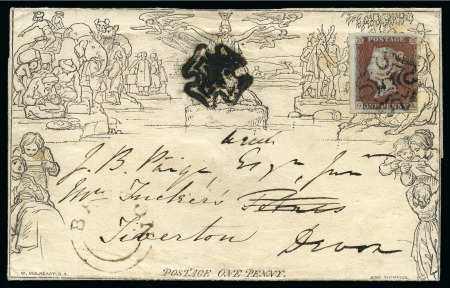 POSTAGE
ONE PENNY
J. B. Paige Esqr Junr
Mr Tucker's
Tiverton Devon
POSTAGE ONE PENNY.
W. MULREADY, R.A.
JOHN THOMPSON